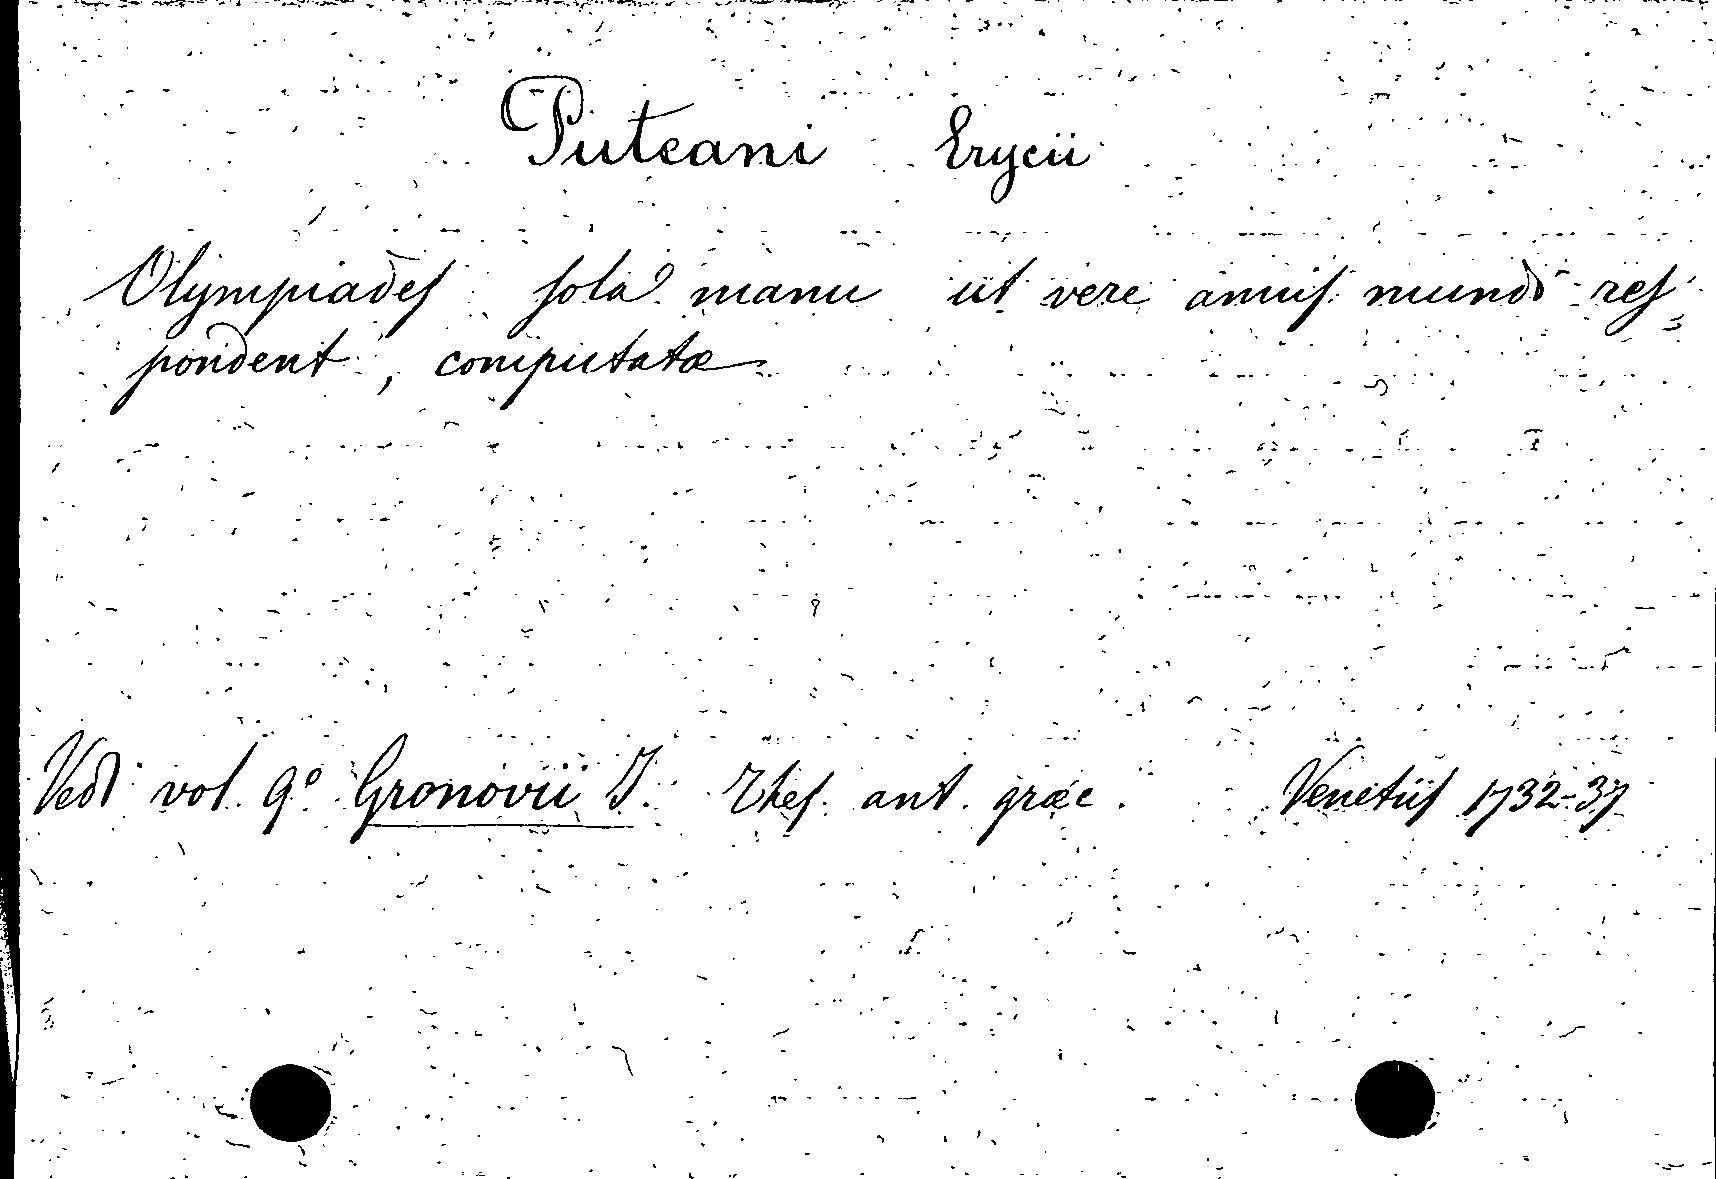 Puteani Erycii
Olympiades sola manu ut vere annis mundi res-
pondent, computatæ
Vedi vol. 9º Gronovii J. Thes. ant. græc. Venetiis 1732-37